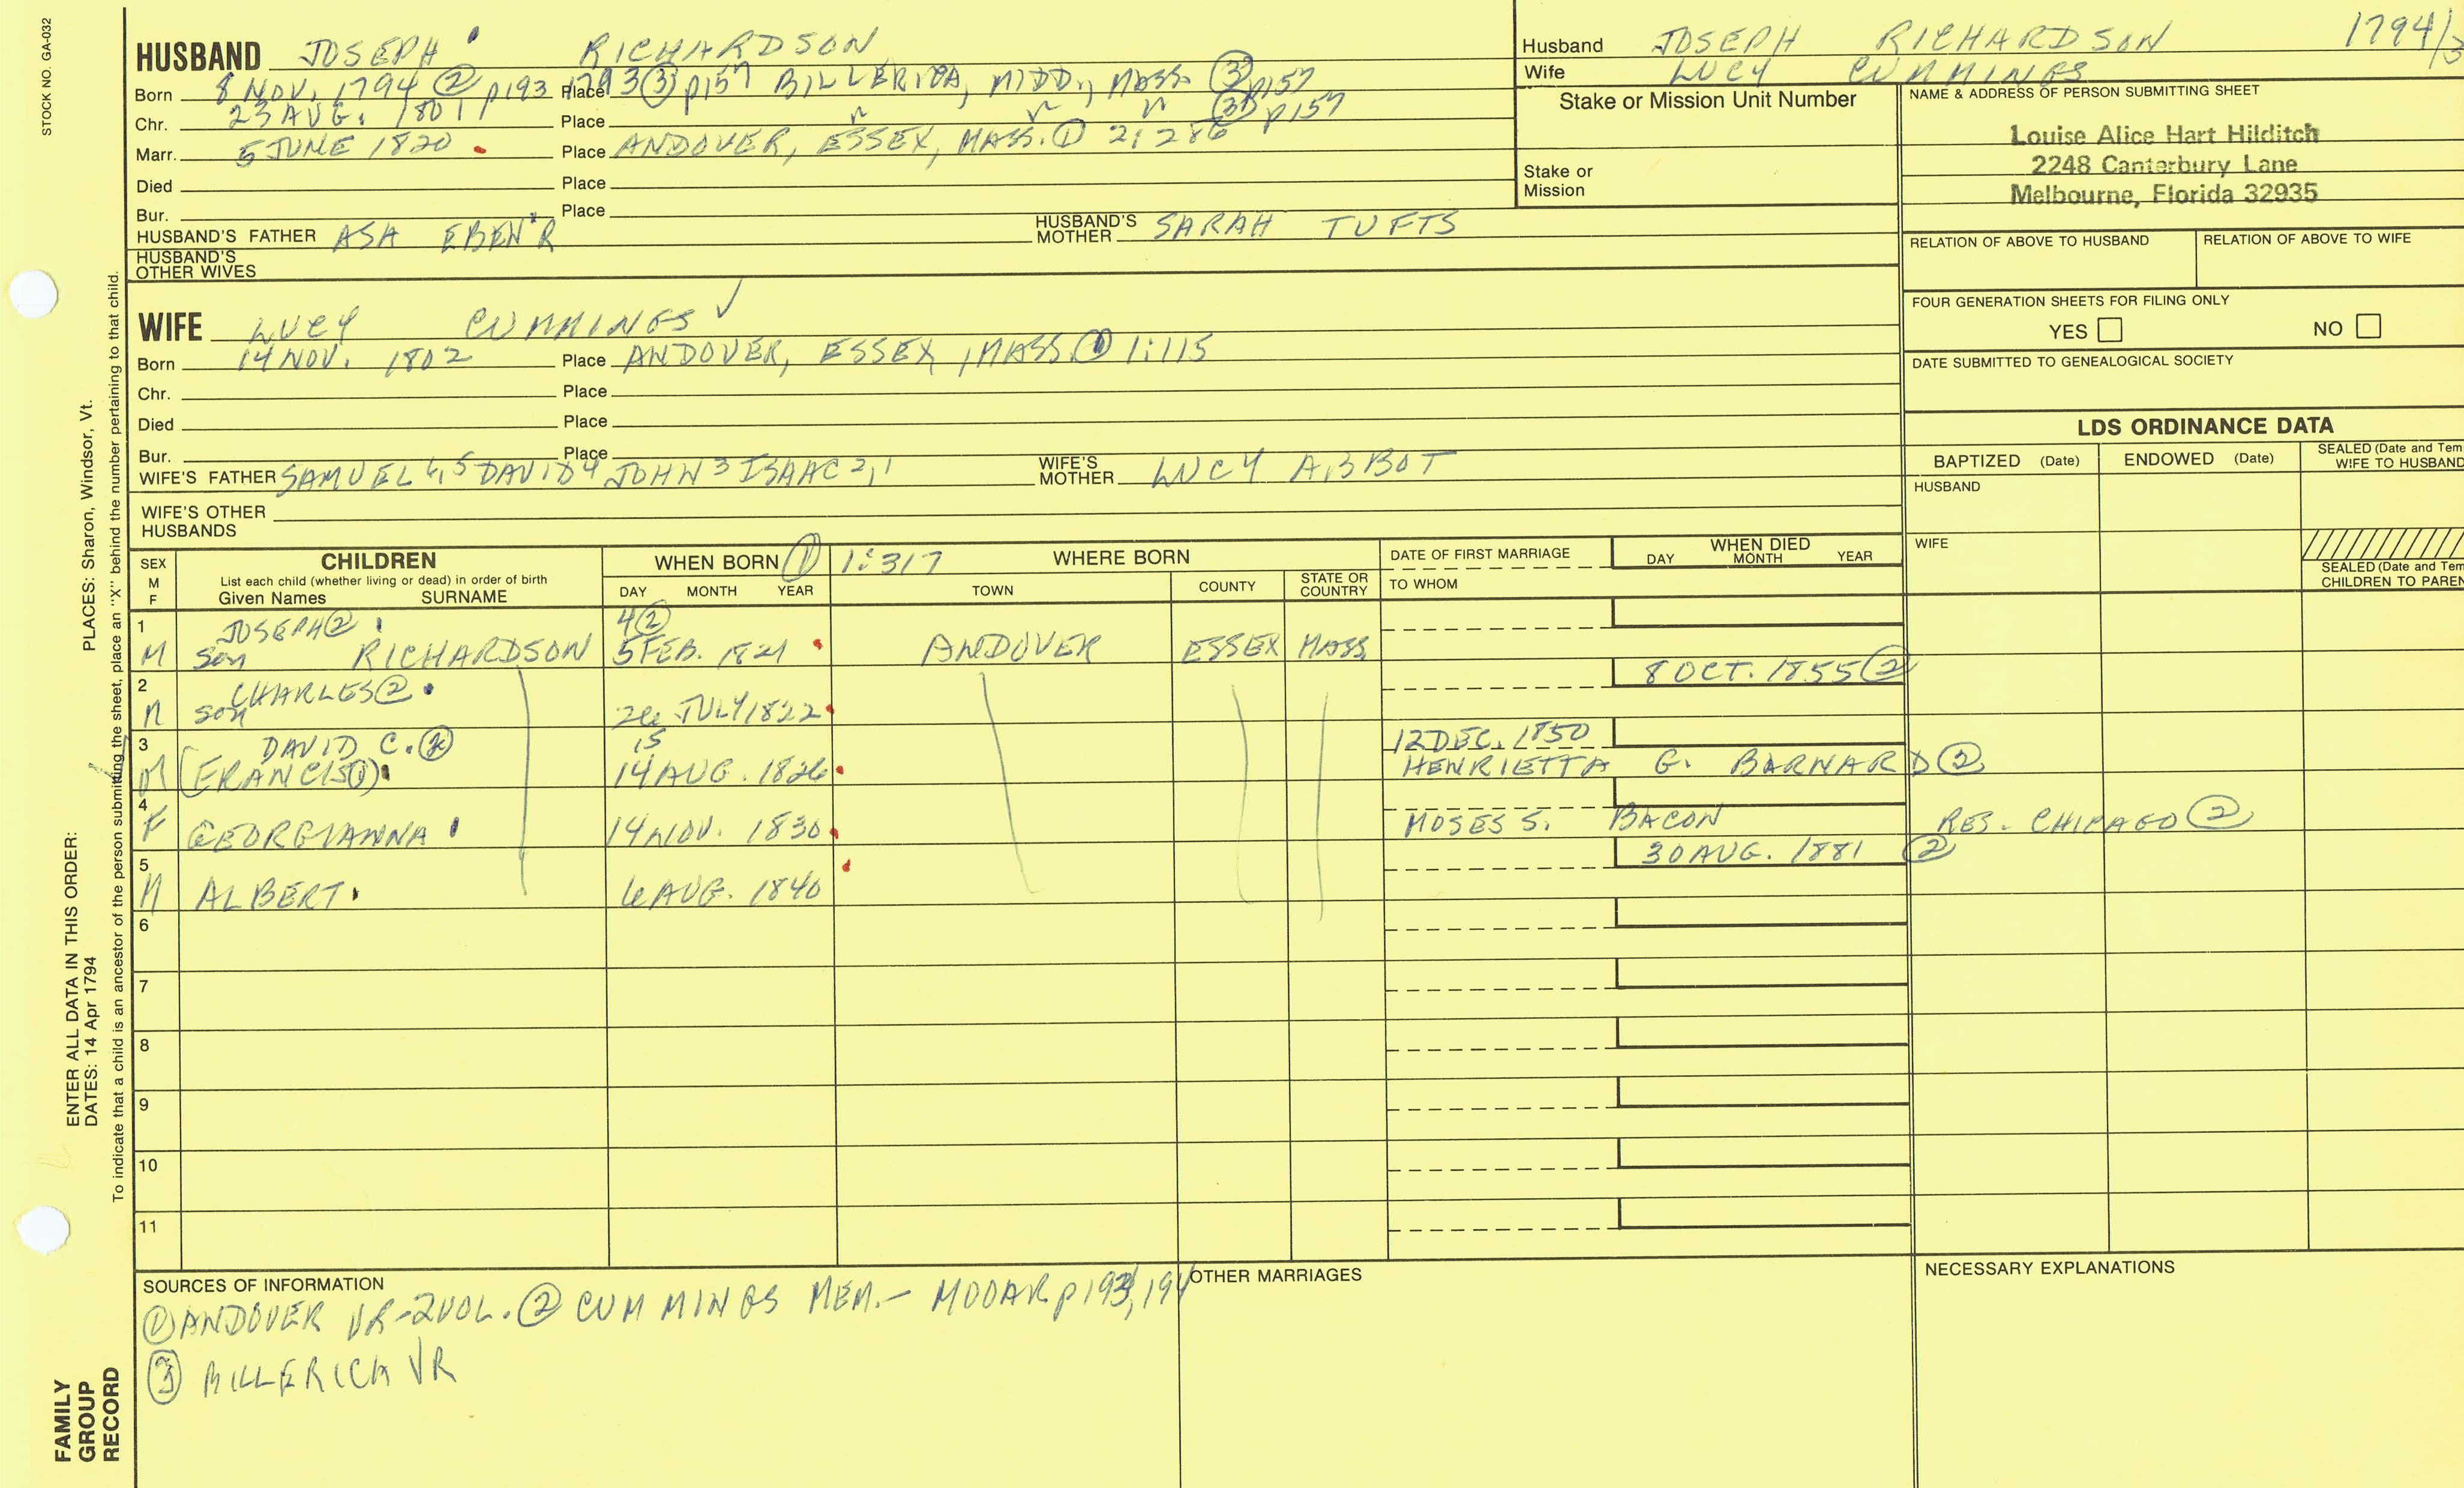 STOCK NO. GA-032
HUSBAND JOSEPH RICHARDSON
Born 8 NOV. 1794 ② p193 Place 1793 ③ p157 BILLERICA, MIDD., MASS. ③ p157
Chr. 23 AUG. 1801 Place " " " ③ p157
Marr. 5 JUNE 1820 Place ANDOVER, ESSEX, MASS. ① 2:286
Died Place
Bur. Place
HUSBAND'S FATHER ASA EBEN'R HUSBAND'S MOTHER SARAH TUFTS
HUSBAND'S OTHER WIVES
WIFE LUCY CUMMINGS ✓
Born 14 NOV. 1802 Place ANDOVER, ESSEX, MASS. ① 1:115
Chr. Place
Died Place
Bur. Place
WIFE'S FATHER SAMUEL 6,5 DAVID 4 JOHN 3 ISAAC 2,1 WIFE'S MOTHER LUCY ABBOT
WIFE'S OTHER HUSBANDS
Husband JOSEPH RICHARDSON 1794/3
Wife LUCY CUMMINGS
Stake or Mission Unit Number
Stake or Mission
NAME & ADDRESS OF PERSON SUBMITTING SHEET
Louise Alice Hart Hilditch
2248 Canterbury Lane
Melbourne, Florida 32935
RELATION OF ABOVE TO HUSBAND RELATION OF ABOVE TO WIFE
FOUR GENERATION SHEETS FOR FILING ONLY
YES NO
DATE SUBMITTED TO GENEALOGICAL SOCIETY
LDS ORDINANCE DATA
BAPTIZED (Date) ENDOWED (Date) SEALED (Date and Tem
WIFE TO HUSBAND
HUSBAND
WIFE
SEALED (Date and Tem
CHILDREN TO PAREN
SEX M F
CHILDREN
List each child (whether living or dead) in order of birth
Given Names SURNAME
WHEN BORN ① 1:317
DAY MONTH YEAR
WHERE BORN
TOWN COUNTY STATE OR COUNTRY
DATE OF FIRST MARRIAGE
TO WHOM
WHEN DIED
DAY MONTH YEAR
1 JOSEPH ② 4 ②
M son RICHARDSON 5 FEB. 1821 ANDOVER ESSEX MASS.
2 CHARLES ② 8 OCT. 1855 ②
M son 26 JULY 1822
3 DAVID C. ② 15 12 DEC. 1850
M (FRANCIS ①) 14 AUG. 1826 HENRIETTA G. BARNARD ②
4
F GEORGIANNA 14 NOV. 1830 MOSES S. BACON RES. CHICAGO ②
5 30 AUG. 1881 ②
M ALBERT 6 AUG. 1840
6
7
8
9
10
11
SOURCES OF INFORMATION
① ANDOVER VR-2VOL. ② CUMMINGS MEM.- MOOAR p193, 194
③ BILLERICA VR
OTHER MARRIAGES
NECESSARY EXPLANATIONS
FAMILY GROUP RECORD
ENTER ALL DATA IN THIS ORDER:
DATES: 14 Apr 1794
PLACES: Sharon, Windsor, Vt.
To indicate that a child is an ancestor of the person submitting the sheet, place an "X" behind the number pertaining to that child.